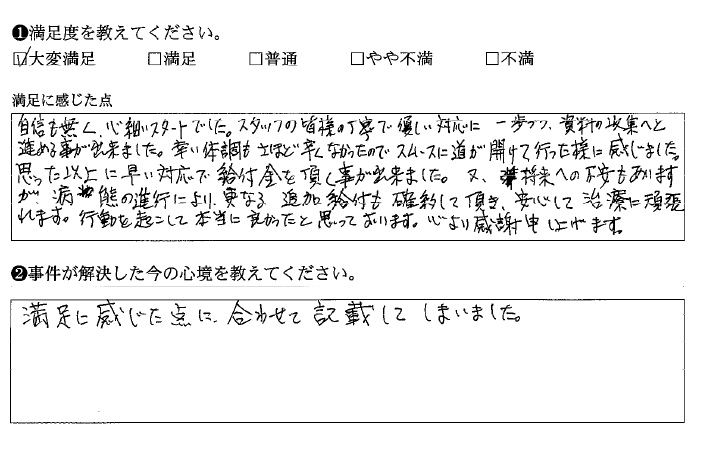 ❶満足度を教えてください。
☑大変満足 □満足 □普通 □やや不満 □不満
満足に感じた点
自信も無く、心細いスタートでした。スタッフの皆様の丁寧で優しい対応に 一歩づつ、資料の収集へと
進める事が出来ました。幸い体調もさほど辛くなかったのでスムースに道が開けて行った様に感じました。
思った以上に早い対応で給付金を頂く事が出来ました。又、将来への不安もあります
が、病態の進行により、更なる 追加給付も確約して頂き、安心して治療に頑張
れます。行動を起こして本当に良かったと思っております。心より感謝申し上げます。
❷事件が解決した今の心境を教えてください。
満足に感じた点に、合わせて記載してしまいました。